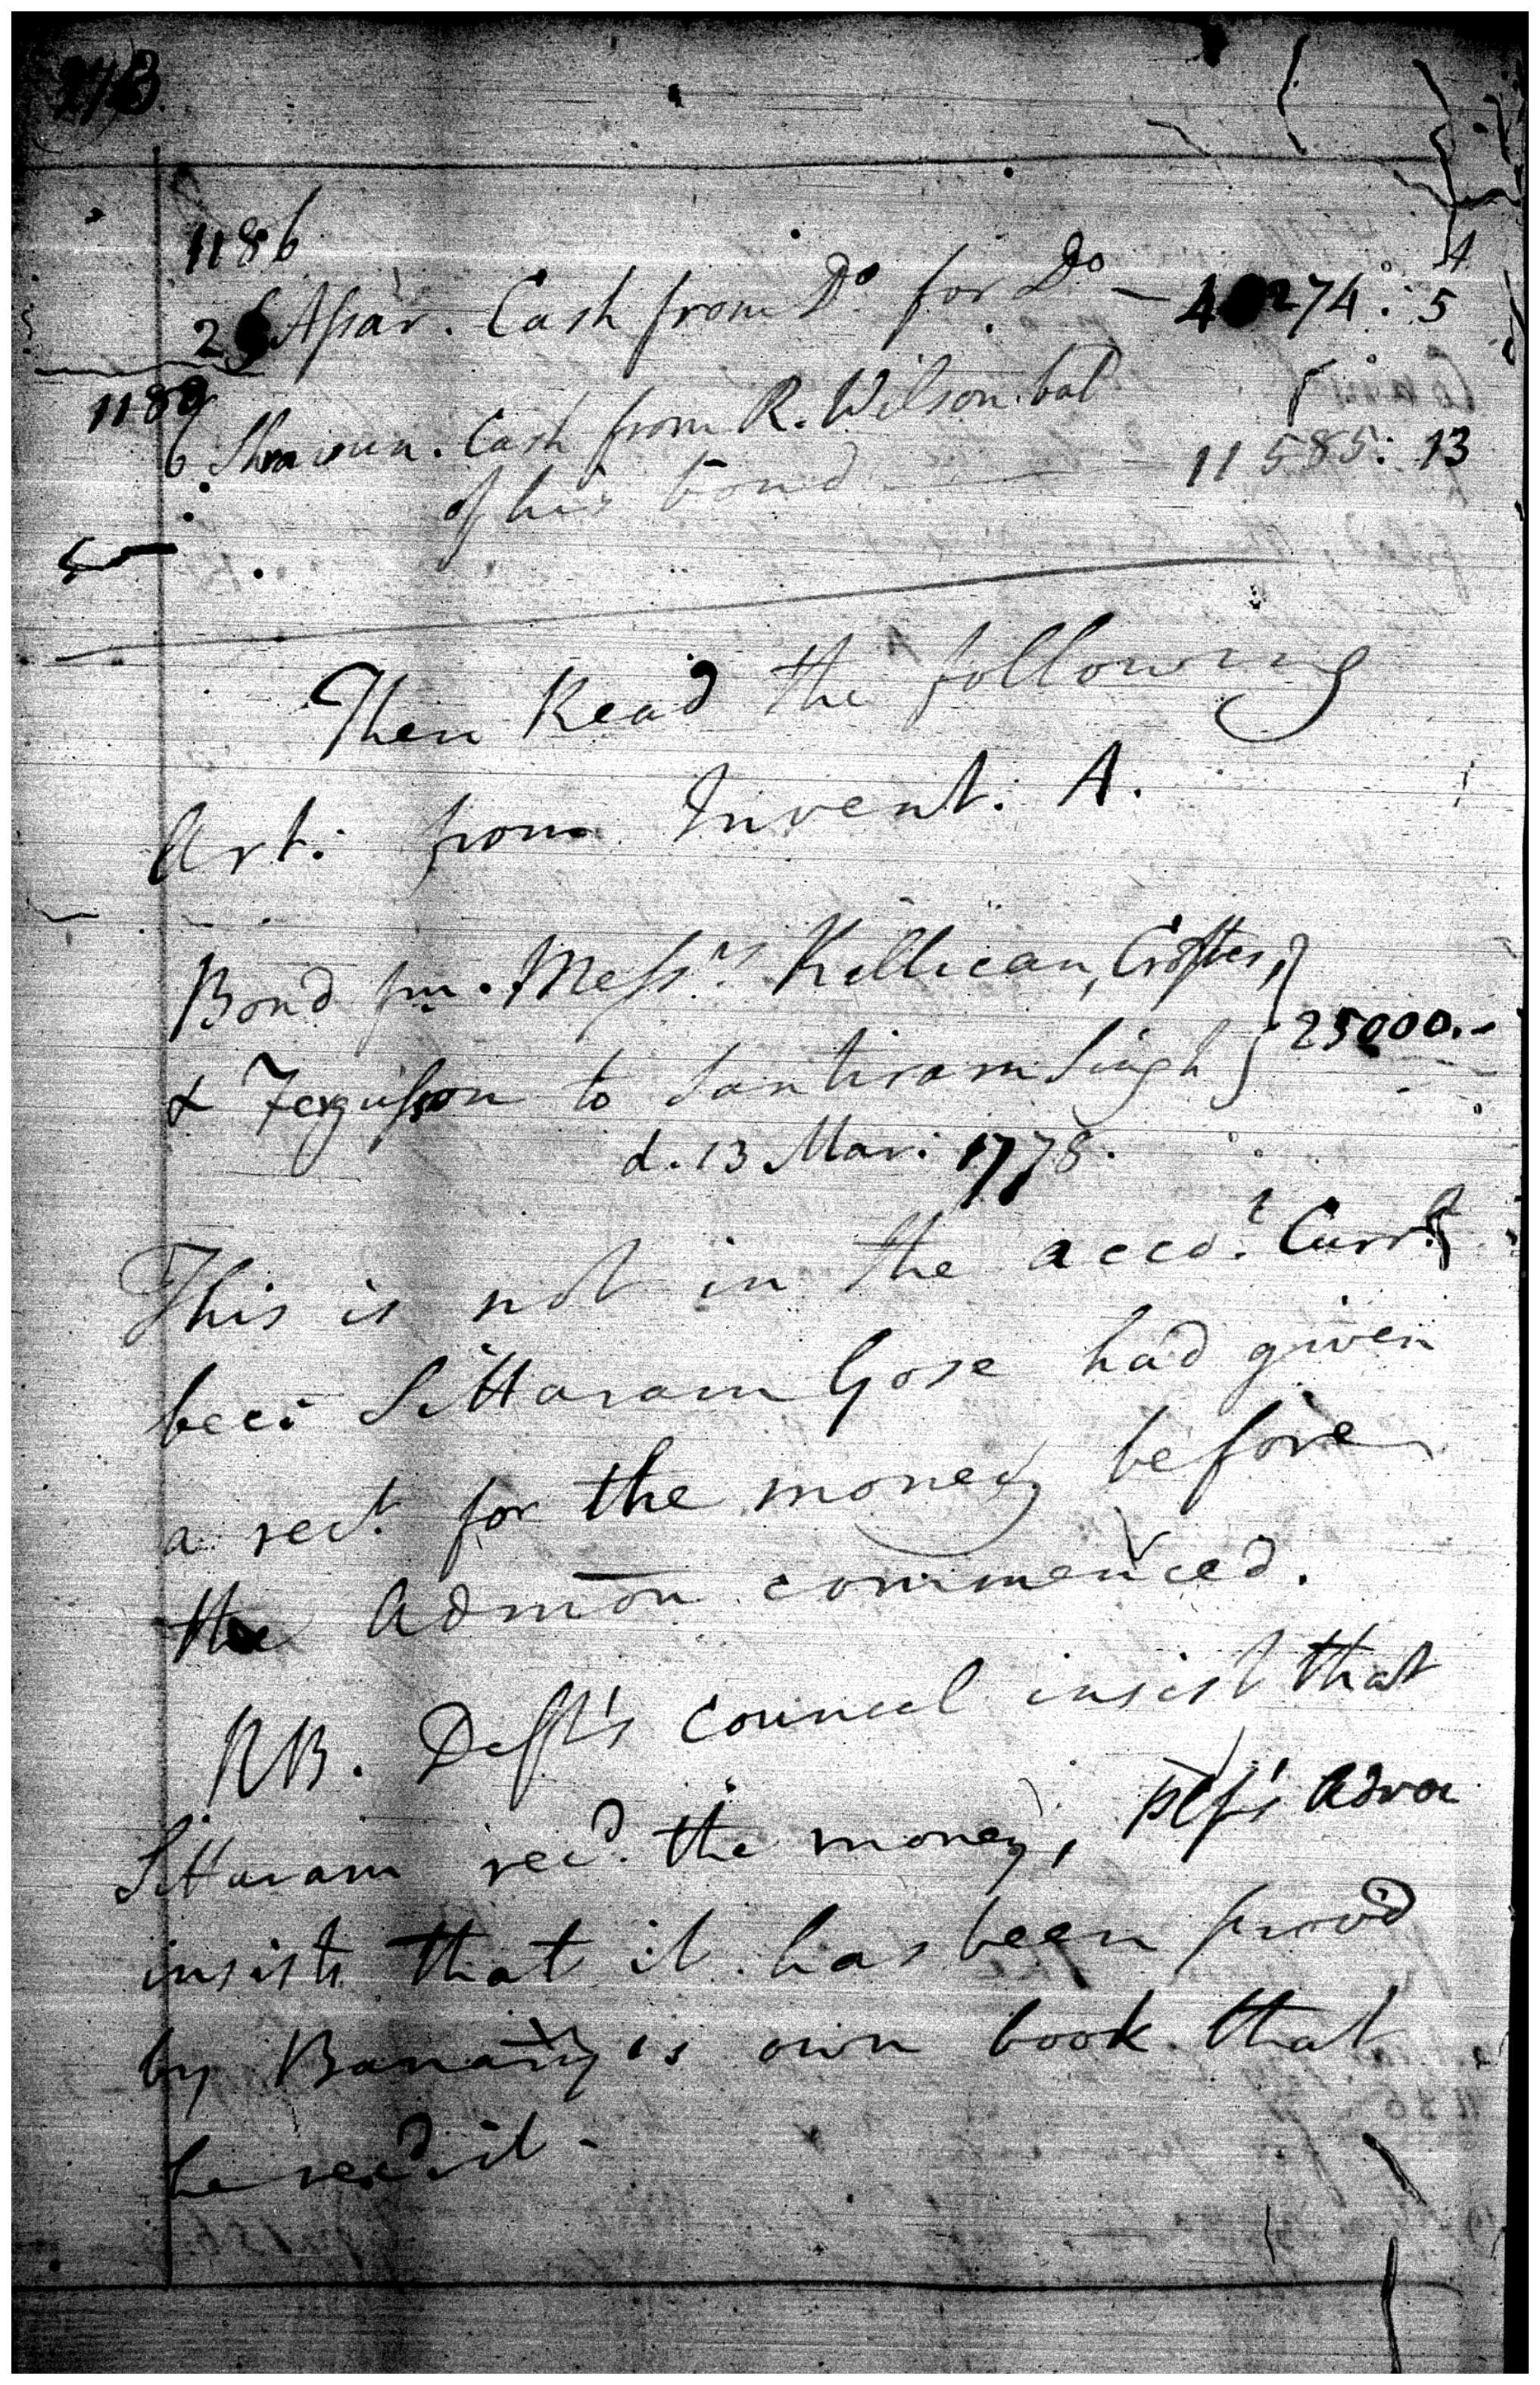 273
1186
2 Assar. Cash from Do for Do — 274 : 5
1189
6 Shrawun. Cash from R. Wilson bal
of his bond — 11585 : 13
Then Read the following
Art: from Invent. A.
Bond fm. Messrs Killican, Croftes,
& Fergusson to Santiram Singh } 25000.-
d. 13 Mar. 1778.
This is not in the accot. Currt
bece Sittaram Gose had given
a rect. for the money before
the Admōn commenced.
NB. Deft's council insist that
Sittaram recd. the money, plf's advoc
insists that it has been provd
by own book that
he recd it -